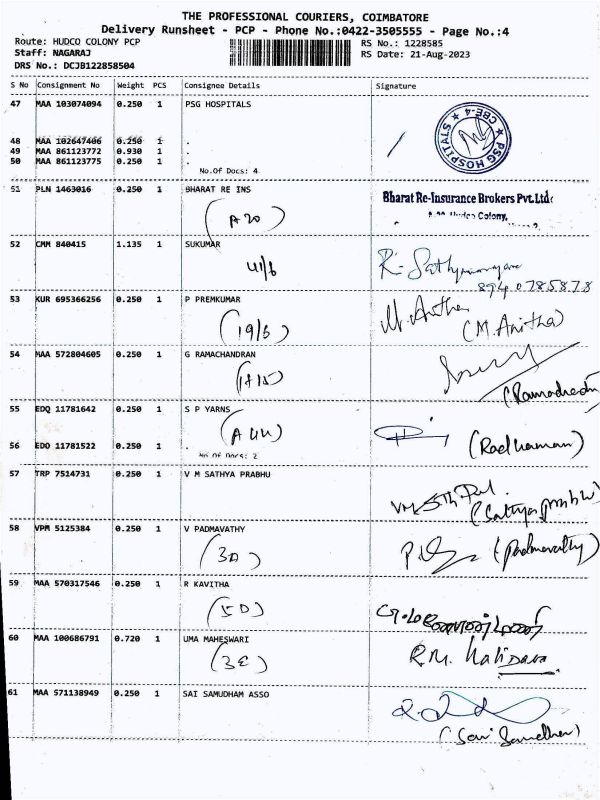 THE PROFESSIONAL COURIERS, COIMBATORE
Delivery Runsheet - PCP - Phone No.:0422-3505555 - Page No.:4
Route: HUDCO COLONY PCP RS No.: 1228585
Staff: NAGARAJ RS Date: 21-Aug-2023
DRS No.: DCJB122858504
S No Consignment No Weight PCS Consignee Details Signature
47 MAA 103074094 0.250 1 PSG HOSPITALS
PSG HOSPITALS CBE-4
48 MAA 102647406 0.250 1 .
49 MAA 861123772 0.930 1 .
50 MAA 861123775 0.250 1 .
No.Of Docs: 4
51 PLN 1463016 0.250 1 BHARAT RE INS Bharat Re-Insurance Brokers Pvt.Ltd.
(A20) Hudco Colony,
52 CMM 840415 1.135 1 SUKUMAR
41/6 R. Sathyanarayanan
8940785878
53 KUR 695366256 0.250 1 P PREMKUMAR M. Anitha
(19/6) (M. Anitha)
54 MAA 572804605 0.250 1 G RAMACHANDRAN
55 EDQ 11781642 0.250 1 S P YARNS
(A44) (Radhaman)
56 EDO 11781522 0.250 1 .
No Of Docs: 2
57 TRP 7514731 0.250 1 V M SATHYA PRABHU
(Sathya prabhu)
58 VPM 5125384 0.250 1 V PADMAVATHY
(3D) (Padmavathy)
59 MAA 570317546 0.250 1 R KAVITHA
(5D)
60 MAA 100686791 0.720 1 UMA MAHESWARI
(3E) R.M.
61 MAA 571138949 0.250 1 SAI SAMUDHAM ASSO